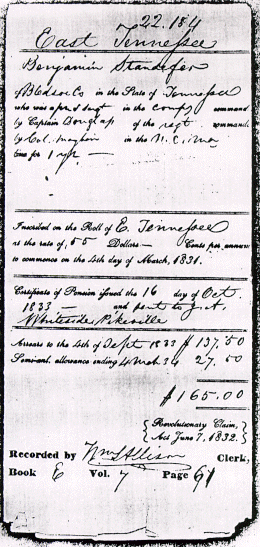 22.184
East Tennessee
Benjamin Standefer
of Bledsoe Co in the State of Tennessee
who was a pr & Sergt in the compy command
by Captain Douglas of the regt commande
by Col. in the N. C. line
for 1 yr.
Inscribed on the Roll of E. Tennessee
at the rate of 55 Dollars — Cents per annum
to commence on the 4th day of March, 1831.
Certificate of Pension issued the 16 day of Oct.
1833 — and sent to J. A.
Whiteside, Pikeville
Arrears to the 4th of Sept 1833 $ 137.50
Semi-ant. allowance ending 4 Mch 34 27.50
$ 165.00
Revolutionary Claim,
Act June 7, 1832.
Recorded by Wm Allison Clerk,
Book E Vol. 7 Page 61